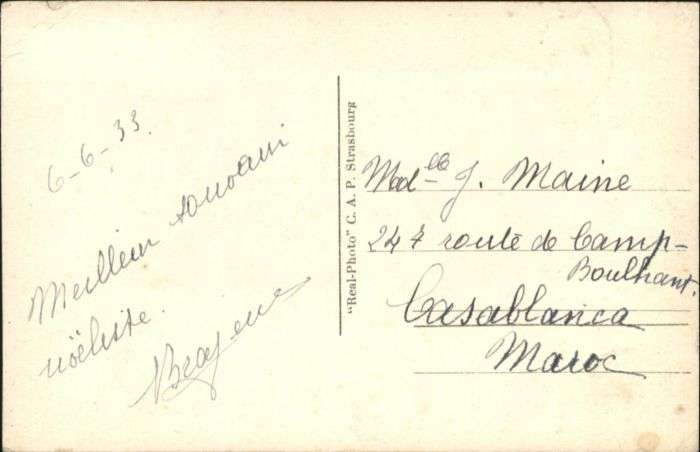 6-6-33.
Meilleur souveni
noëliste.
"Real-Photo" C. A. P. Strasbourg
Mad^elle J. Maine
247 route de Camp-
Boulhant.
Casablanca
Maroc